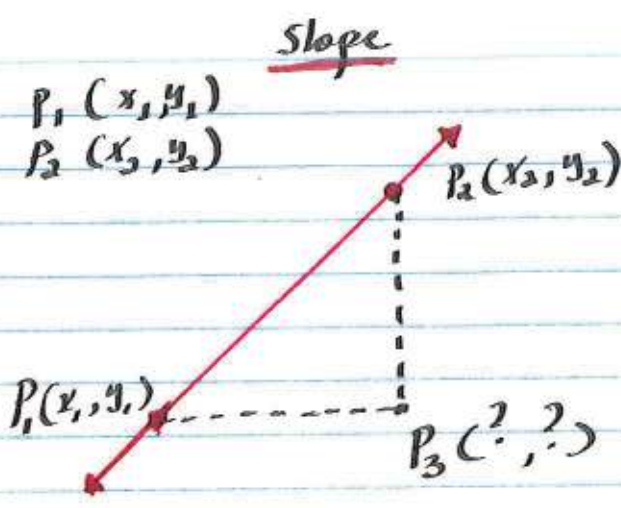 Slope
P₁ (x₁, y₁)
P₂ (x₂, y₂)
P₂ (x₂, y₂)
P₁ (x₁, y₁)
P₃ (?, ?)